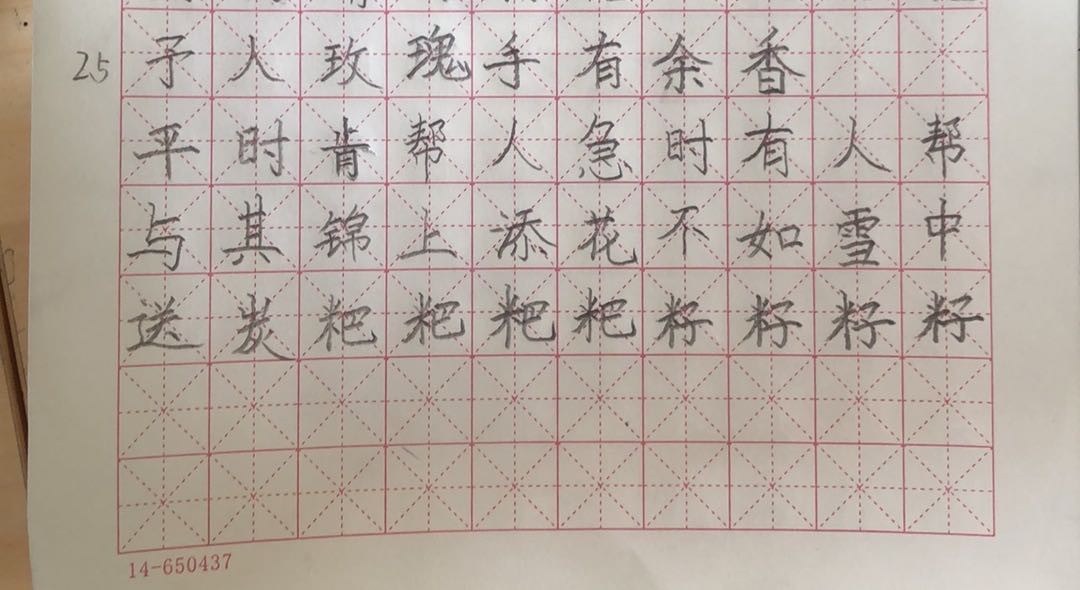 25 予人玫瑰手有余香
平时肯帮人急时有人帮
与其锦上添花不如雪中
送炭粑粑粑粑籽籽籽籽
14-650437